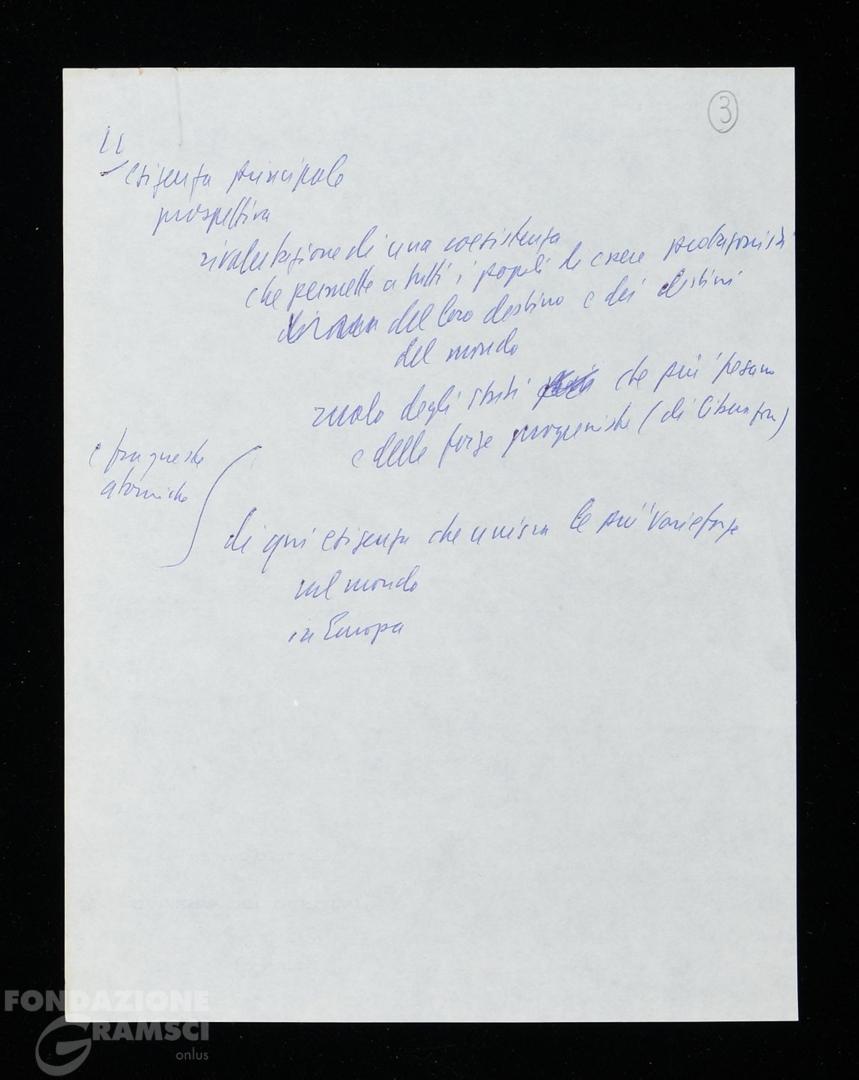 3
esigenza principale
prospettiva
rivalutazione di una coesistenza
che permette a tutti i popoli di essere protagonisti
del loro destino e dei destini
del mondo
ruolo degli stati che più pesano
e delle forze progressiste (di liberaz)
e fra queste
atomiche
di qui esigenza che unisca le più varie forze
nel mondo
in Europa
FONDAZIONE
GRAMSCI
onlus